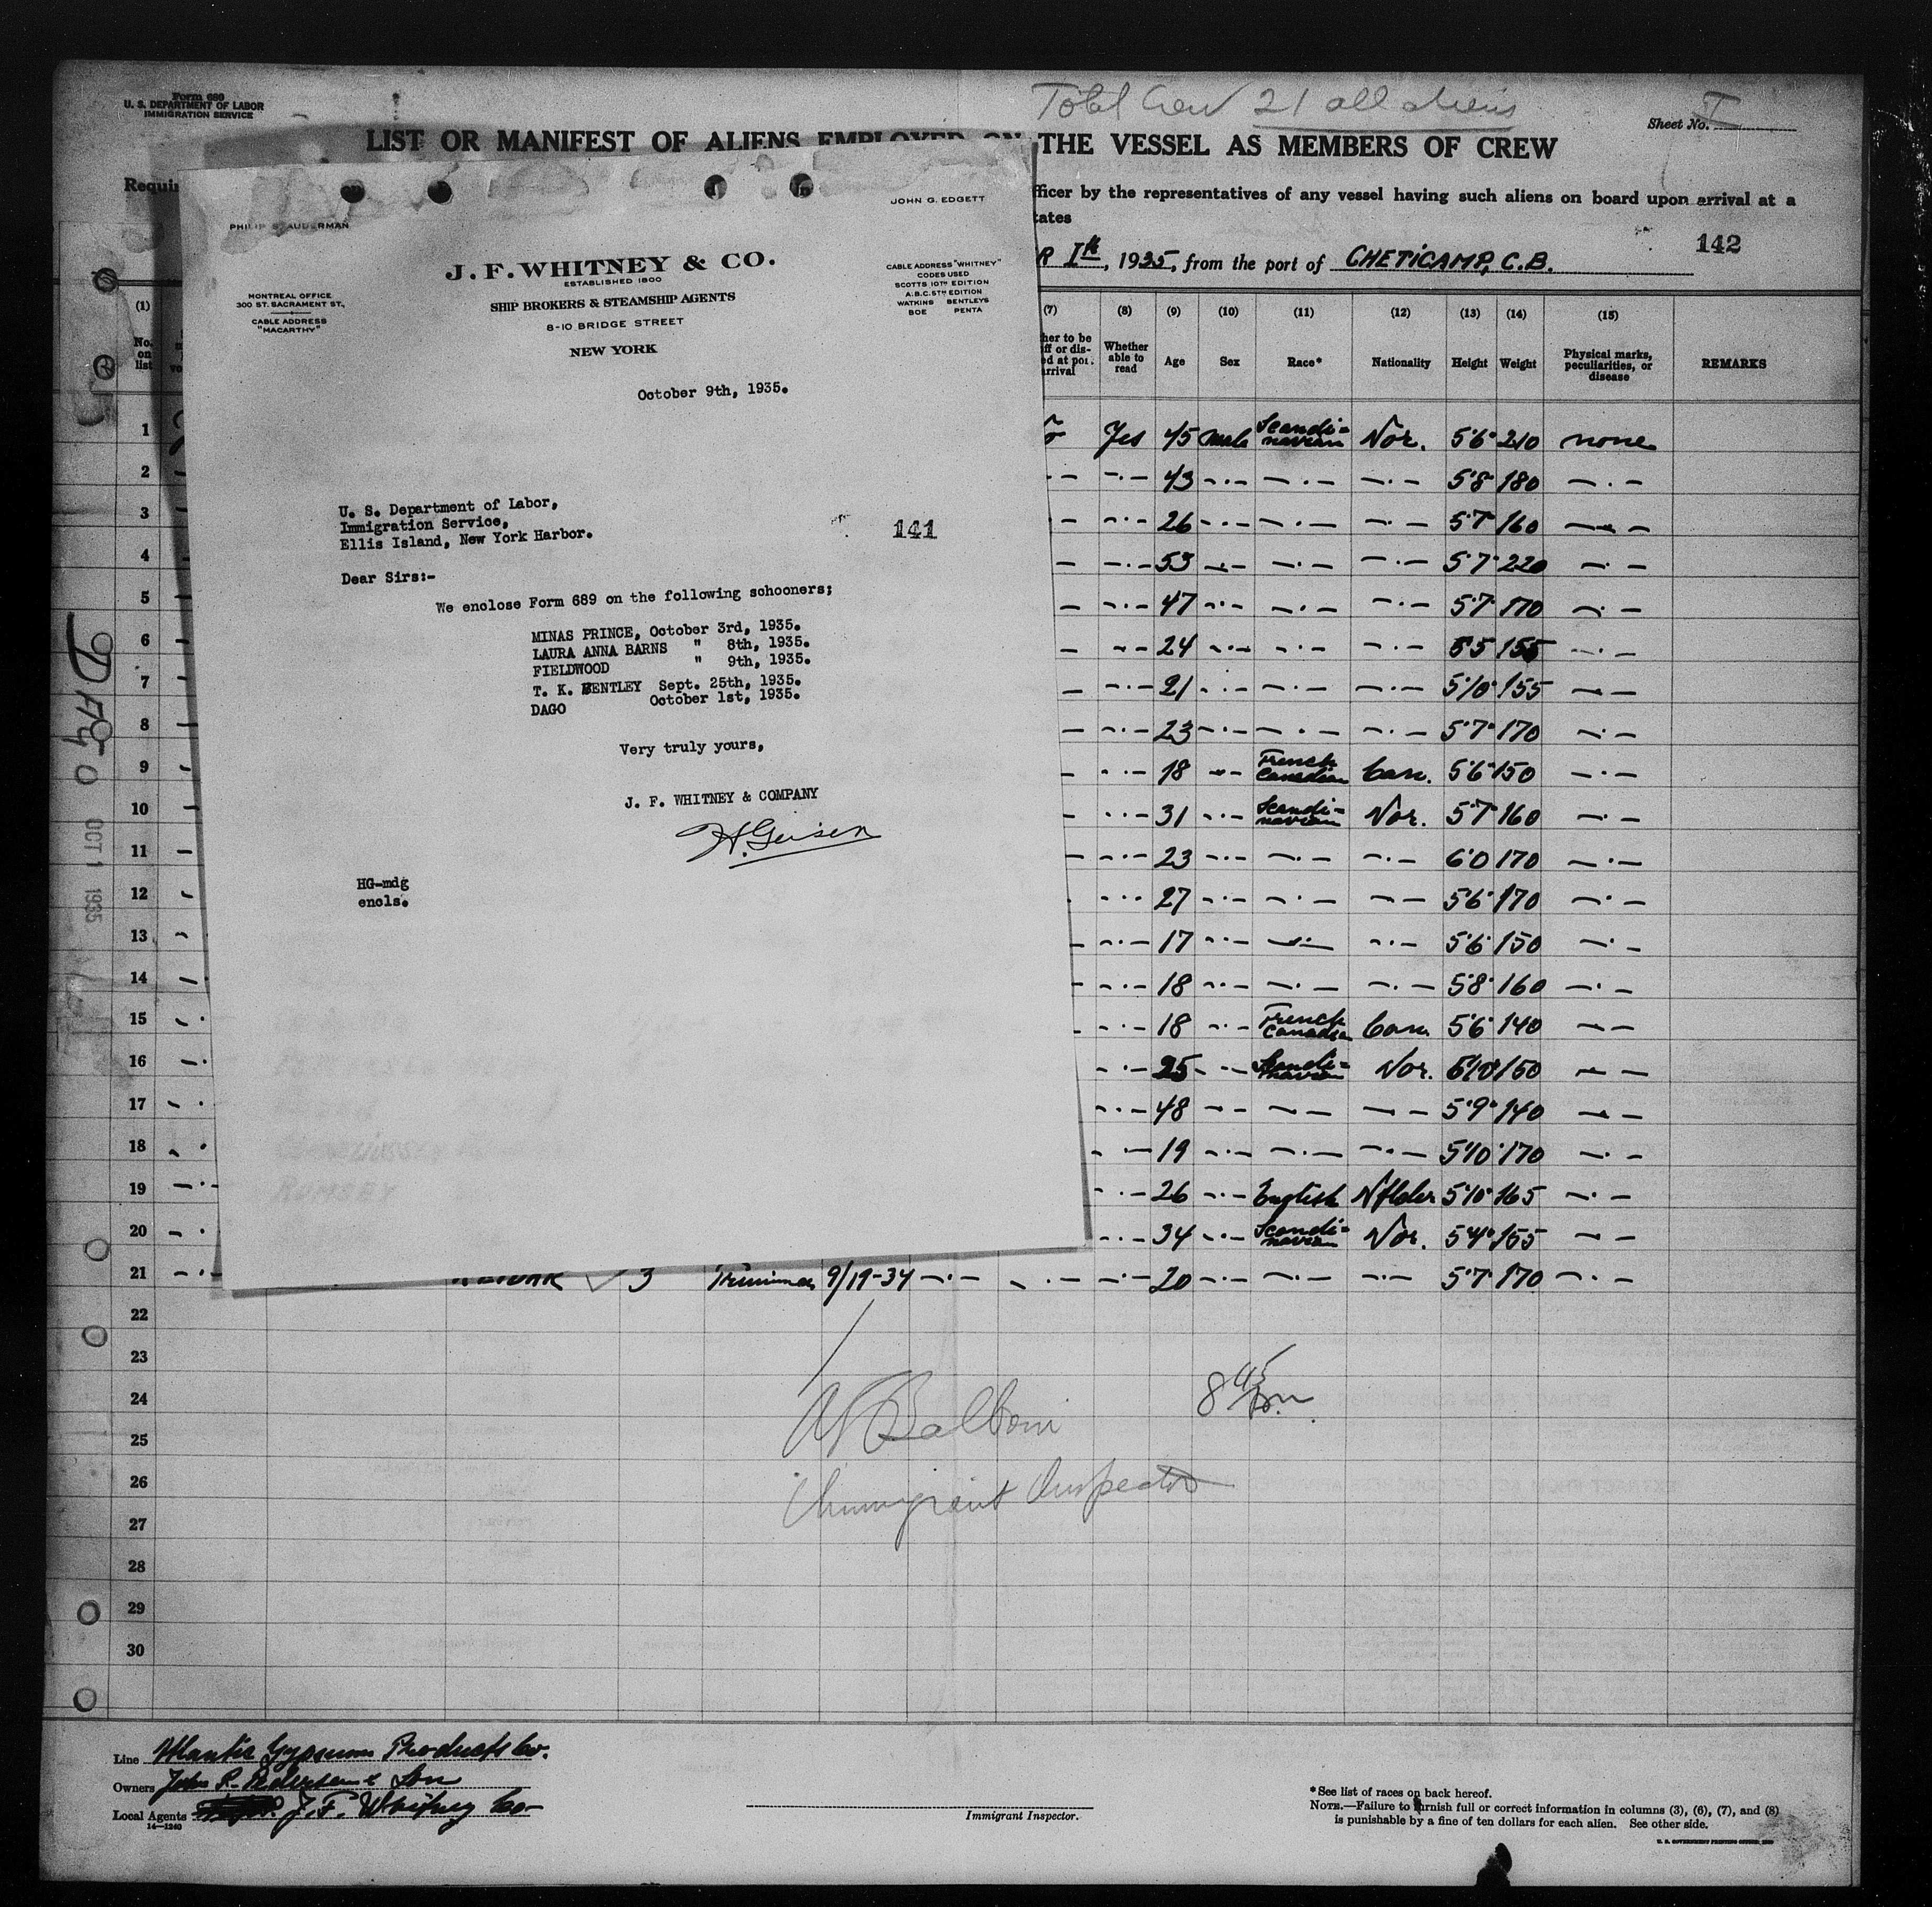 Form 689
U. S. DEPARTMENT OF LABOR
IMMIGRATION SERVICE
Total Crew 21 all aliens
Sheet No. I
LIST OR MANIFEST OF ALIENS EMPLOYED ON THE VESSEL AS MEMBERS OF CREW
fficer by the representatives of any vessel having such aliens on board upon arrival at a
tates
142
R Ist, 1935, from the port of CHETICAMP, C.B.
PHILIP S. AUDERMAN
JOHN G. EDGETT
J. F. WHITNEY & CO.
ESTABLISHED 1800
SHIP BROKERS & STEAMSHIP AGENTS
8-10 BRIDGE STREET
NEW YORK
MONTREAL OFFICE
300 ST. SACRAMENT ST.,
CABLE ADDRESS
"MACARTHY"
CABLE ADDRESS "WHITNEY"
CODES USED
SCOTTS 10TH EDITION
A.B.C. 5TH EDITION
WATKINS BENTLEYS
BOE PENTA
October 9th, 1935.
U. S. Department of Labor,
Immigration Service,
Ellis Island, New York Harbor.
141
Dear Sirs:-
We enclose Form 689 on the following schooners;
MINAS PRINCE, October 3rd, 1935.
LAURA ANNA BARNS " 8th, 1935.
FIELDWOOD " 9th, 1935.
T. K. BENTLEY Sept. 25th, 1935.
DAGO October 1st, 1935.
Very truly yours,
J. F. WHITNEY & COMPANY
H. Geisen
HG-mdg
encls.
(1) (7) (8) (9) (10) (11) (12) (13) (14) (15)
No. on list
Whether able to read Age Sex Race* Nationality Height Weight Physical marks, peculiarities, or disease REMARKS
1 Yes 45 Male Scandi=navian Nor. 5'6" 210 none
2 — 43 — — — 5'8" 180 —
3 — 26 — — — 5'7" 160 —
4 — 53 — — — 5'7" 220 —
5 — 47 — — — 5'7" 170 —
6 — 24 — — — 5'5 155 —
7 — 21 — — — 5'10" 155 —
8 — 23 — — — 5'7" 170 —
9 — 18 — French Canadian Can. 5'6" 150 —
10 — 31 — Scandi=navian Nor. 5'7" 160 —
11 — 23 — — — 6'0 170 —
12 — 27 — — — 5'6" 170 —
13 — 17 — — — 5'6" 150 —
14 — 18 — — — 5'8" 160 —
15 — 18 — French Canadian Can. 5'6" 140 —
16 — 25 — Scandi=navian Nor. 5'10" 150 —
17 — 48 — — — 5'9" 140 —
18 — 19 — — — 5'10" 170 —
19 — 26 — English Nflder 5'10" 165 —
20 — 34 — Scandi=navian Nor. 5'4" 155 —
21 — 3 Trimmer 9/19-34 — — — 20 — — — 5'7" 170 —
22
23
24
25
26
27
28
29
30
8 45
Balboni
Immigrant Inspector
DAGO
OCT 1 1935
Line Atlantic Gypsum Products Co.
Owners John P. Pedersen & Son
Local Agents J. F. Whitney Co
14—1240
Immigrant Inspector.
*See list of races on back hereof.
NOTE.—Failure to furnish full or correct information in columns (3), (6), (7), and (8)
is punishable by a fine of ten dollars for each alien. See other side.